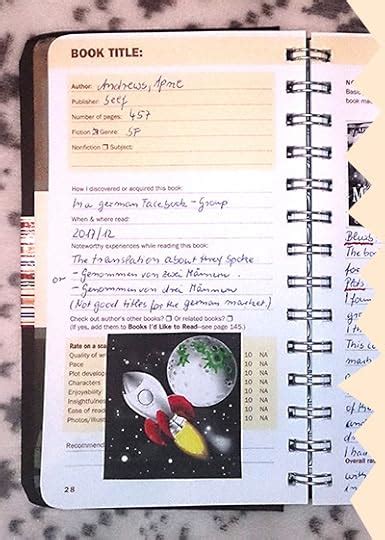 BOOK TITLE:
Author: Andrews,
Publisher: Self
Number of pages: 457
Fiction ☒ Genre: SF
Nonfiction ☐ Subject:
How I discovered or acquired this book:
In a german Facebook-Group
When & where read:
2017/12
Noteworthy experiences while reading this book:
The translation about they Spoke
- Genommen von zwei Männern.
or - Genommen von drei Männern
(Not good titles for the german market)
Check out author's other books? ☐ Or related books? ☐
(If yes, add them to Books I'd Like to Read—see page 145.)
Rate on a
Quality of
Pace 10 NA
Plot 10 NA
Characters 10 NA
Enjoyability 10 NA
10 NA
Ease of 10 NA
10 NA
28
Blurb:
The
for
Plot:
I